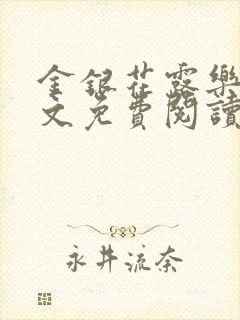 金銀花露樂
文免費閱讀
永井流奈